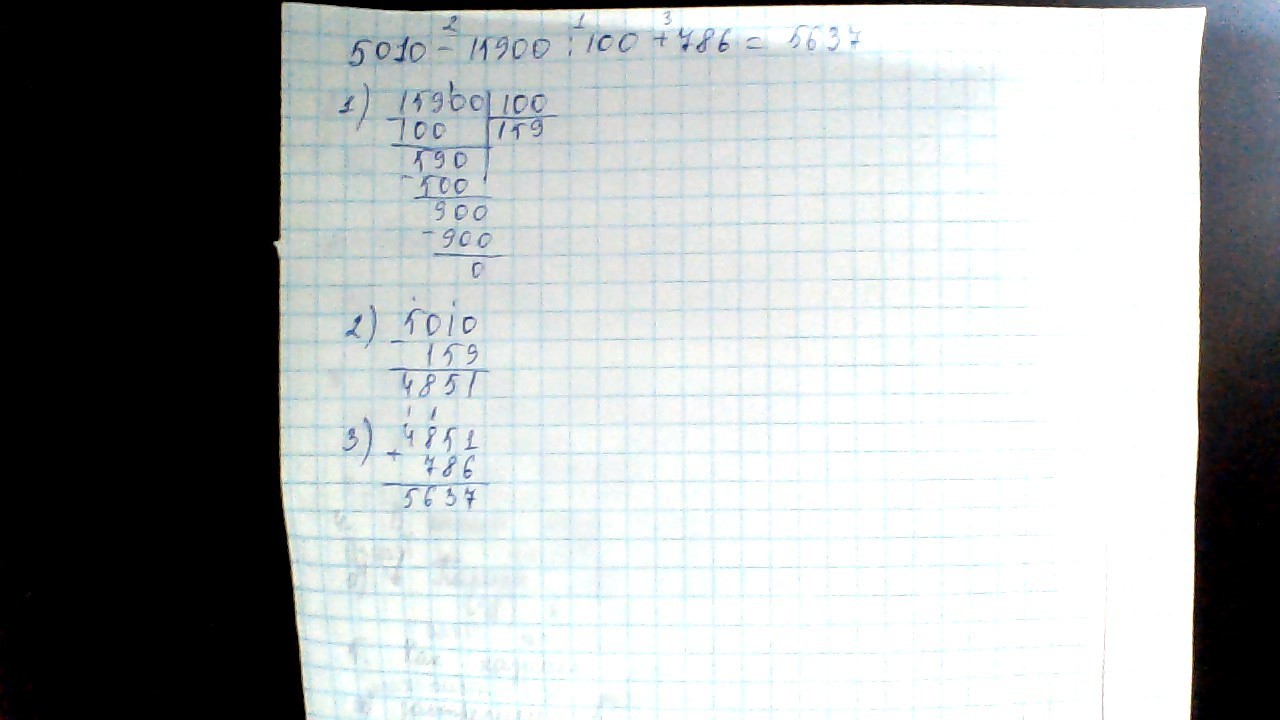 2 1 3
5010 - 15900 : 100 + 786 = 5637
1) 15900 | 100
100 | 159
590
- 500
900
- 900
0
2) 5010
- 159
4851
1 1
3) 4851
+ 786
5637